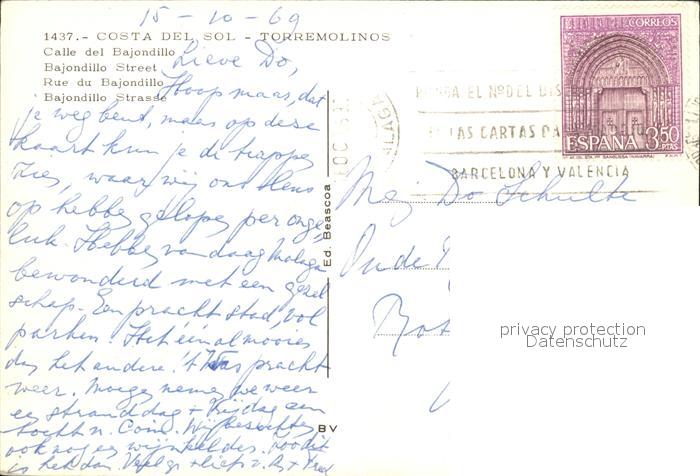 15-10-69
1437.- COSTA DEL SOL - TORREMOLINOS
Calle del Bajondillo
Bajondillo Street
Rue du Bajondillo
Bajondillo Strasse
Lieve Do,
Hoop maar, dat
je weg bent, maar op deze
kaart kun je de trappen
zien, waar wij ons
op hebben gelopen per onge-
luk. Hebben vandaag Malaga
bewonderd met een gezel-
schap. Een pracht stad, vol
parken. Het één al mooier
dan het andere. 't Was pracht
weer. Morgen nemen we weer
een stranddag + Vrijdag een
tocht n. Coin. Wij bezochten
ook nog een wijnkelder. Voor dit
is het dan. Veel gr + liefs v. A +
Ed. Beascoa
BV
CORREOS
ESPAÑA 3,50
PTAS
MALAGA
EL Nº DEL DIS
LAS CARTAS PA
BARCELONA Y VALENCIA
Mej. Do Schulte
Oude
Rot
privacy protection
Datenschutz